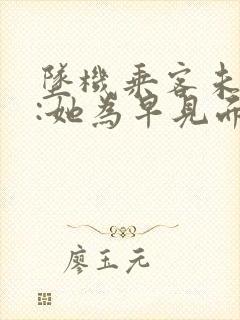 墜機乘客未
:她為早見而
廖玉元